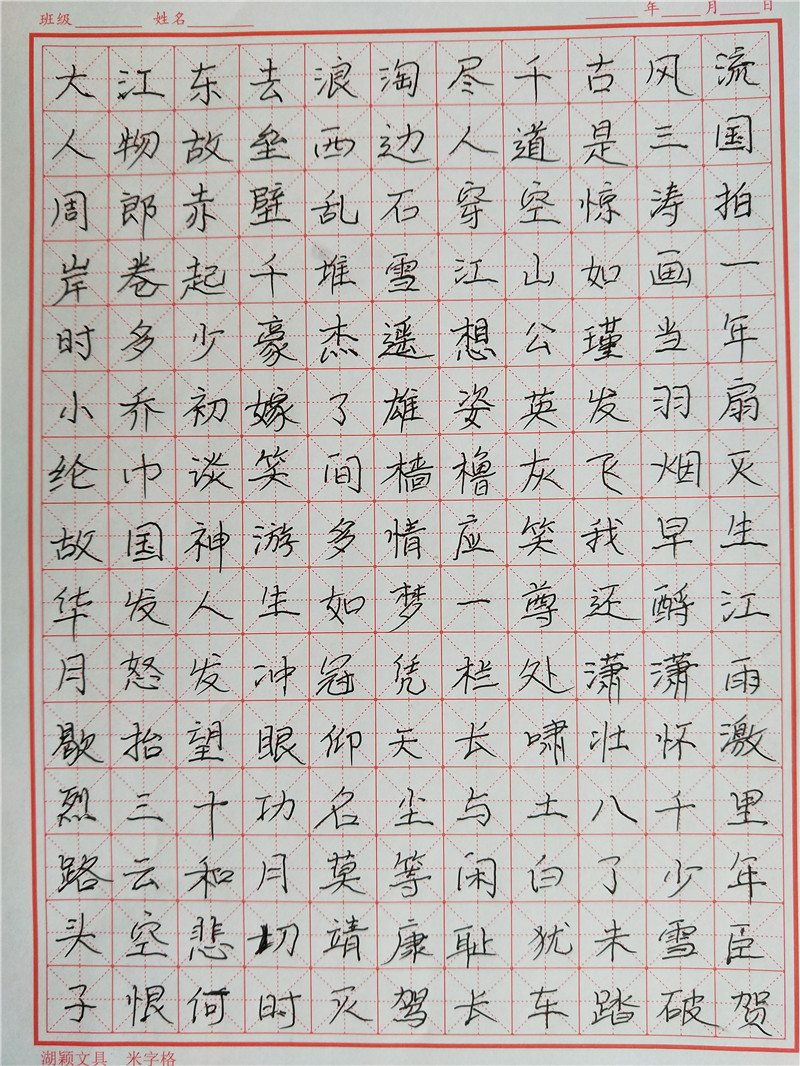 班级 姓名 年 月 日
大江东去浪淘尽千古风流
人物故垒西边人道是三国
周郎赤壁乱石穿空惊涛拍
岸卷起千堆雪江山如画一
时多少豪杰遥想公瑾当年
小乔初嫁了雄姿英发羽扇
纶巾谈笑间樯橹灰飞烟灭
故国神游多情应笑我早生
华发人生如梦一尊还酹江
月怒发冲冠凭栏处潇潇雨
歇抬望眼仰天长啸壮怀激
烈三十功名尘与土八千里
路云和月莫等闲白了少年
头空悲切靖康耻犹未雪臣
子恨何时灭驾长车踏破贺
湖颖文具 米字格